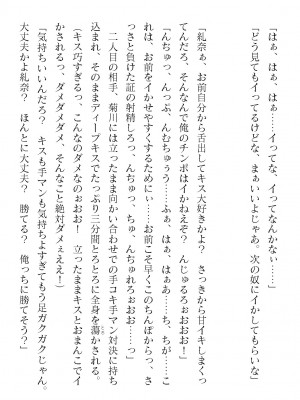 「はぁ、はぁ、はぁ……イってな、イってなんかなぃ……」
「どう見てもイってるけどな、まぁいいよじゃあ。次の奴にイかしてもらいな」
「糺奈ぁ、お前自分から舌出してキス大好きかよ？　さっきから甘イキしまくっ
てんだろ、そんなんで俺のチンポはイかねえぞ？　んじゅるろぉおお！」
「んちゅっ、んっぷ、んちゅちゅぅう……ふぁ、はぁ、はぁあ……ち、ちが……こ
れは、お前をイかせやすくするために……お前こそ早くこのちんぽから、っ、さ
っさと負けた証の精液を出しなさい、んちゅっ、ちゅ、んちゅれろぉおお……っ」
二人目の相手、菊川には立ったまま向かい合わせでの手コキ手マン対決に持ち
込まれ、そのままディープキスでたっぷり三分間とろとろに全身を蕩かされる。
「キス巧すぎるっ、こんなのダメなのぉおお！　立ったままキスとおまんこでイ
かされるっ、ダメダメダメ、そんなこと絶対ダメぇええ！」
「気持ちいいんだろ？　キスも手マンも気持ちよすぎてもう足ガクガクじゃん。
大丈夫かよ糺奈？　ほんとに大丈夫？　勝てる？　俺っちに勝てそう？」